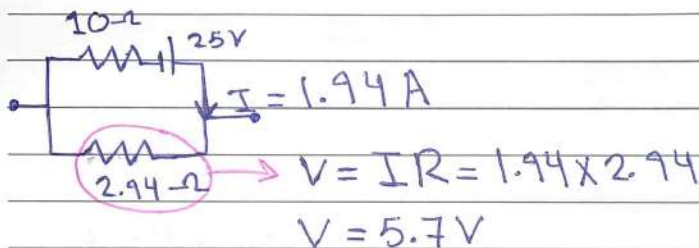 10Ω
25V
I = 1.94 A
2.94Ω
V = IR = 1.94 × 2.94
V = 5.7 V